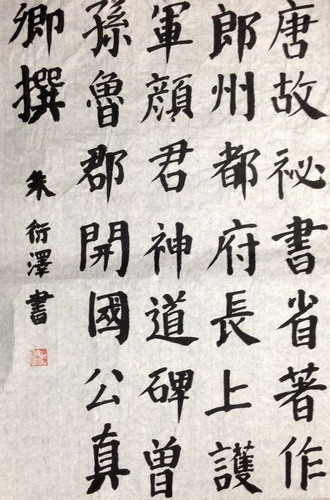 唐故祕書省著作
郎州都府長上護
軍顏君神道碑曾
孫魯郡開國公真
卿撰
朱衍澤書